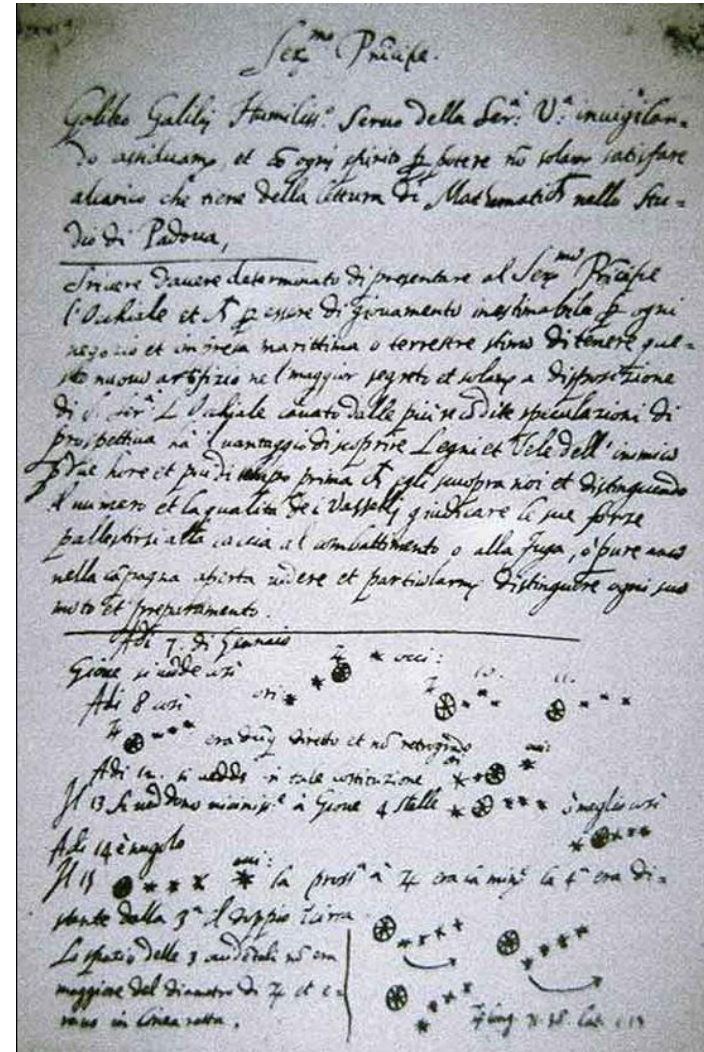 Ser.mo Principe.
Galileo Galilei Humiliss.o Servo della Ser.a V.a invigilan=
do assiduam.te et cō ogni spirito p potere nō solam.te satisfare
al carico che tiene della lettura di Mathematica nello Stu=
dio di Padova,
Scrivere d'avere determinato di presentare al Ser.mo Principe
l'Occhiale et p essere di giovamento inestimabile p ogni
negozio et impresa marittima o terrestre stimo di tenere que=
sto nuovo artifizio nel maggior segreto et solam.te a disposizione
di S. Ser.a L'Occhiale cavato dalle più recōdite speculazioni di
prospettiva hà il vantaggio di scoprire Legni et Vele dell'inimico
p due hore et più di tempo prima ch egli scuopra noi et distinguendo
il numero et la qualità dei Vasselli giudicare le sue forze
pallestirsi alla caccia al combattimento o alla fuga, ò pure anco
nella cāpagna aperta vedere et particolarm.te distinguere ogni suo
moto et preparamento.
Adi 7. di Gennaio
Gione si vedde così ♃ occi:
Adi 8 così ori: ♃ 10. 11.
♃ era dūq diretto et nō retrogrado
Adi 12. si vedde in tale costituzione ori occi:
Il 13 si veddono vicinis.e à Giove 4 stelle ò meglio così
Adi 14 è nugolo
Il 15 occi: la pross.a à ♃ era la min.e la 4.a era di=
stante dalla 3.a il doppio circa
Lo spazio delle 3 occidentali nō era
maggiore del diametro di ♃ et e=
rano in linea retta.
♃ long. 71. 38 Lat. 1. 13